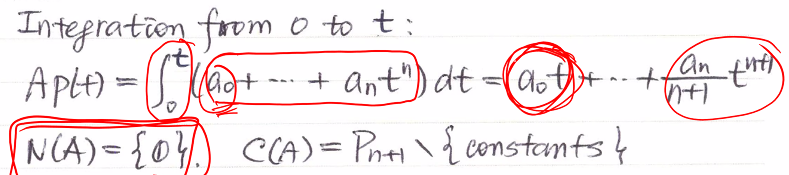 Integration from 0 to t:
Ap(t) = ∫₀ᵗ (a₀ + ··· + aₙtⁿ) dt = a₀t + ··· + aₙ/n+1 tⁿ⁺¹
N(A) = {0}. C(A) = Pₙ₊₁ \ {constants}